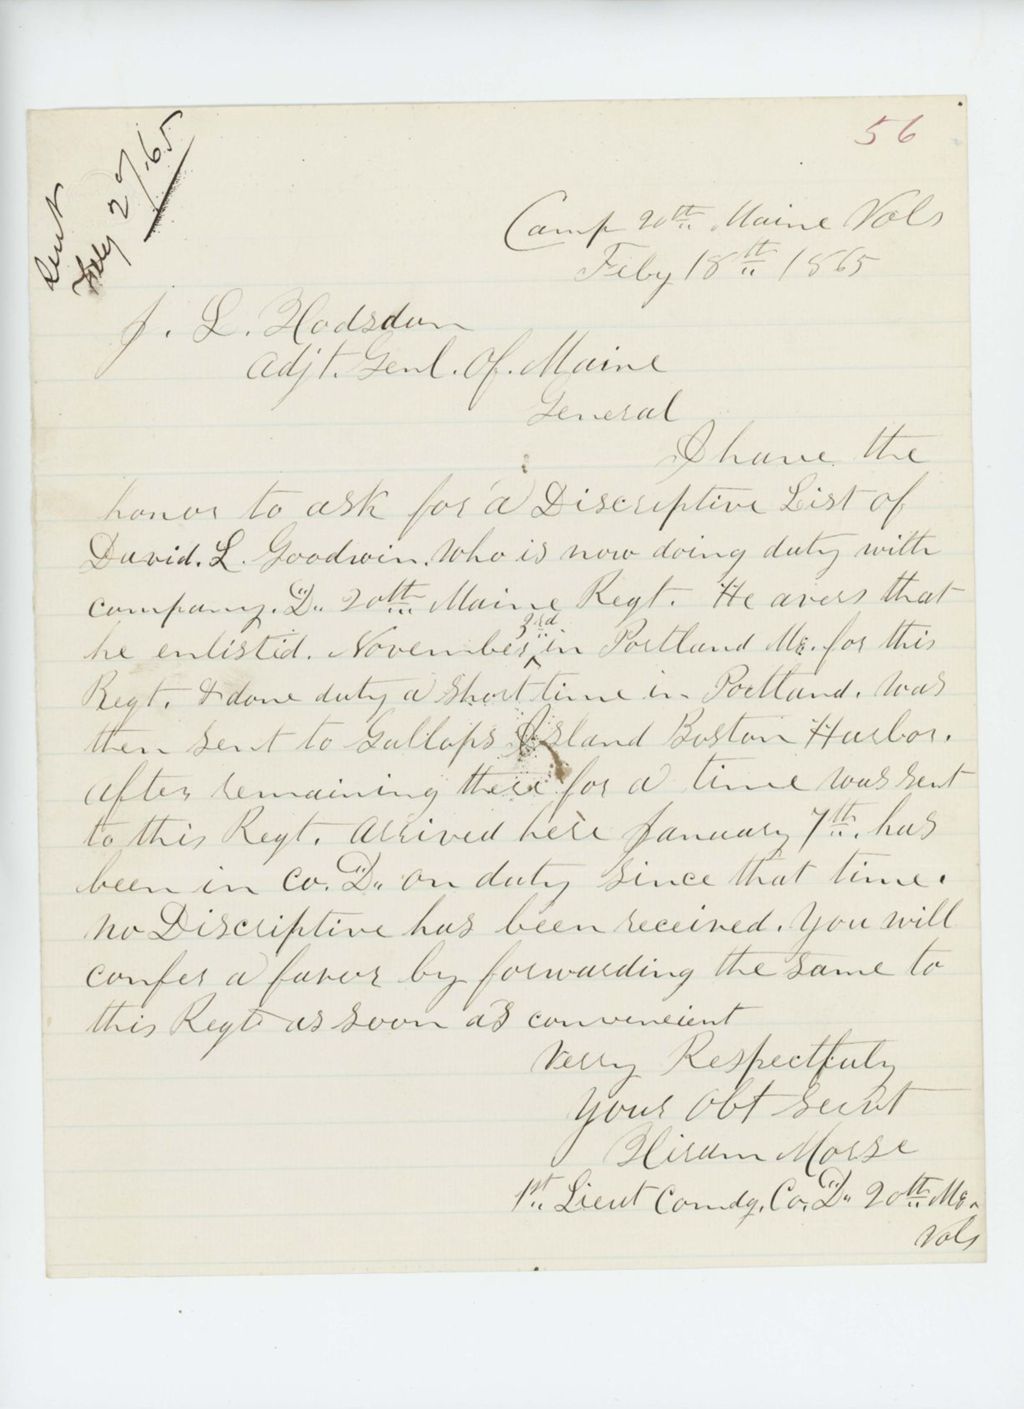 56
Sent
Feby 27/65
Camp 20th Maine Vols
Feby 18th 1865
J. L. Hodsdon
Adjt. Genl. Of. Maine
General
I have the
honor to ask for a Discriptive List of
David. L. Goodwin. Who is now doing duty with
company. "D" 20th Maine Regt. He avers that
he enlisted. November 3rd in Portland Me. for this
Regt. & done duty a short time in Portland. Was
then sent to Gallops Island Boston Harbor.
After remaining there for a time was sent
to this Regt. Arrived here January 7th. has
been in Co. "D" on duty since that time.
No Discriptive has been received. You will
confer a favor by forwarding the same to
this Regt as soon as conveneient
Verry Respectfuly
Your Obt Servt
Hiram Morse
1st Lieut Comdg. Co. "D" 20th Me.
Vols